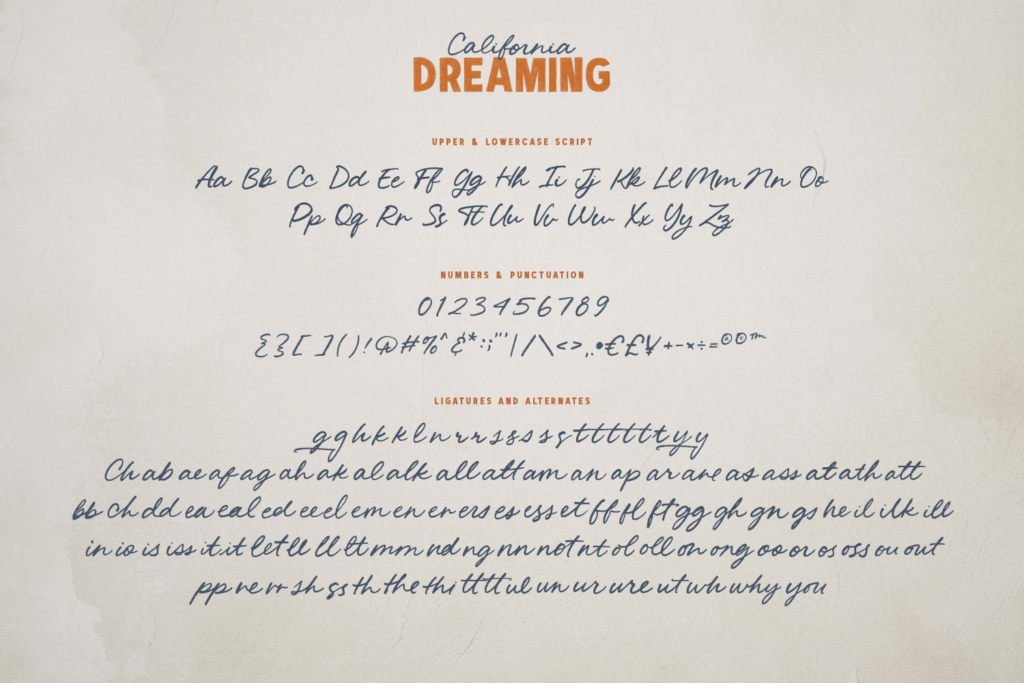 California
DREAMING
UPPER & LOWERCASE SCRIPT
Aa Bb Cc Dd Ee Ff Gg Hh Ii Jj Kk Ll Mm Nn Oo
Pp Qq Rr Ss Tt Uu Vv Ww Xx Yy Zz
NUMBERS & PUNCTUATION
0123456789
{}[]()!@#%^&*:;"'|/\<>,.•€£¥+-×÷=©®™
LIGATURES AND ALTERNATES
g g h k k l n r r s s s s s t t t t t t y y
Ch ab ae af ag ah ak al alk all att am an ap ar are as ass at ath att
bb ch dd ea eal ed ee el em en er ers es ess et ff fl ft gg gh gn gs he il ilk ill
in io is iss it it let ll ll lt mm nd ng nn not nt ol oll on ong oo or os oss ou out
pp re rr sh ss th the thi tt tt ul un ur ure ut wh why you